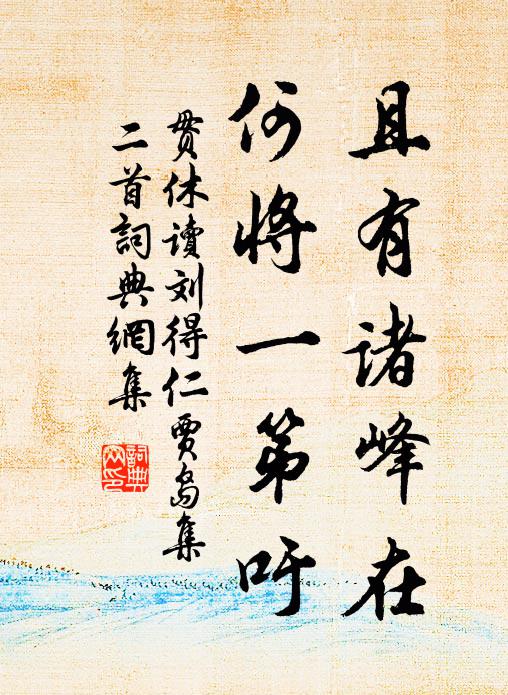 且有诸峰在
何将一第吁
贯休读刘得仁贾岛集
二首詞典網集
詞典